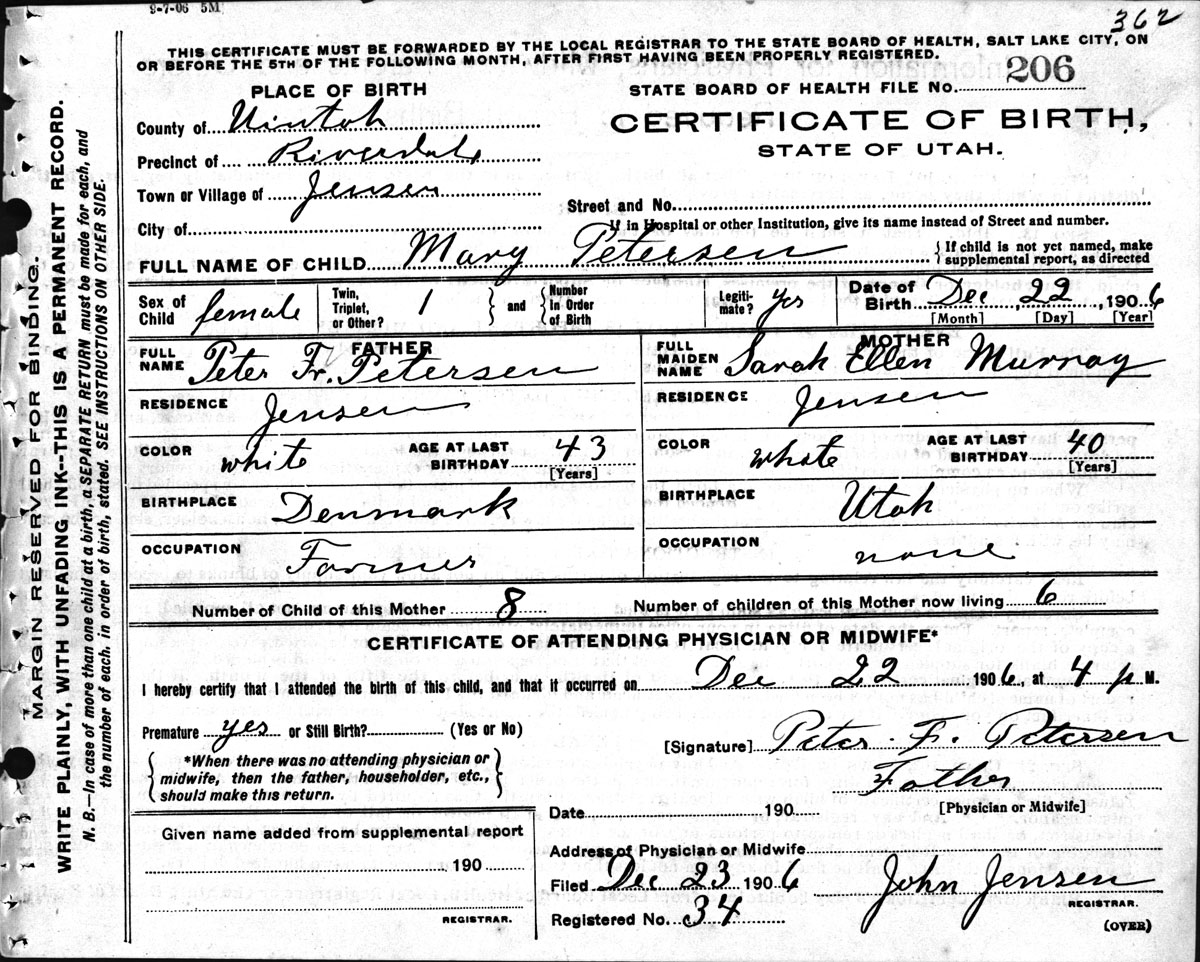 9-7-06 5M
362
THIS CERTIFICATE MUST BE FORWARDED BY THE LOCAL REGISTRAR TO THE STATE BOARD OF HEALTH, SALT LAKE CITY, ON
OR BEFORE THE 5TH OF THE FOLLOWING MONTH, AFTER FIRST HAVING BEEN PROPERLY REGISTERED.
STATE BOARD OF HEALTH FILE No. 206
PLACE OF BIRTH
CERTIFICATE OF BIRTH,
STATE OF UTAH.
County of Uintah
Precinct of Riverdale
Town or Village of Jensen
Street and No.
If in Hospital or other Institution, give its name instead of Street and number.
City of
FULL NAME OF CHILD Mary Petersen { If child is not yet named, make
supplemental report, as directed
Sex of Child female Twin, Triplet, or Other? 1 } and { Number In Order of Birth Legiti-mate? yes Date of Birth Dec 22, 1906
[Month] [Day] [Year]
FATHER
FULL NAME Peter Fr. Petersen
RESIDENCE Jensen
COLOR white AGE AT LAST BIRTHDAY 43
[Years]
BIRTHPLACE Denmark
OCCUPATION Farmer
MOTHER
FULL MAIDEN NAME Sarah Ellen Murray
RESIDENCE Jensen
COLOR white AGE AT LAST BIRTHDAY 40
[Years]
BIRTHPLACE Utah
OCCUPATION none
Number of Child of this Mother 8 Number of children of this Mother now living 6
CERTIFICATE OF ATTENDING PHYSICIAN OR MIDWIFE*
I hereby certify that I attended the birth of this child, and that it occurred on Dec 22 1906, at 4 p M.
Premature yes or Still Birth? (Yes or No)
{ *When there was no attending physician or
midwife, then the father, householder, etc.,
should make this return. }
[Signature] Peter F. Petersen
Father
[Physician or Midwife]
Date 190
Given name added from supplemental report
190
REGISTRAR.
Address of Physician or Midwife
Filed Dec 23 1906 John Jensen
REGISTRAR.
Registered No. 34
(OVER)
MARGIN RESERVED FOR BINDING.
WRITE PLAINLY, WITH UNFADING INK--THIS IS A PERMANENT RECORD.
N. B.—In case of more than one child at a birth, a SEPARATE RETURN must be made for each, and
the number of each, in order of birth, stated. SEE INSTRUCTIONS ON OTHER SIDE.